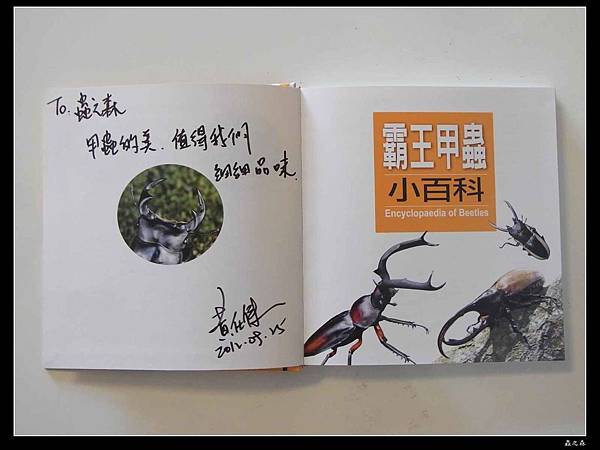 To. 蟲之森
甲蟲的美. 值得我們
細細品味.
黃仕傑
2012.09.25
霸王甲蟲
小百科
Encyclopaedia of Beetles
蟲之森